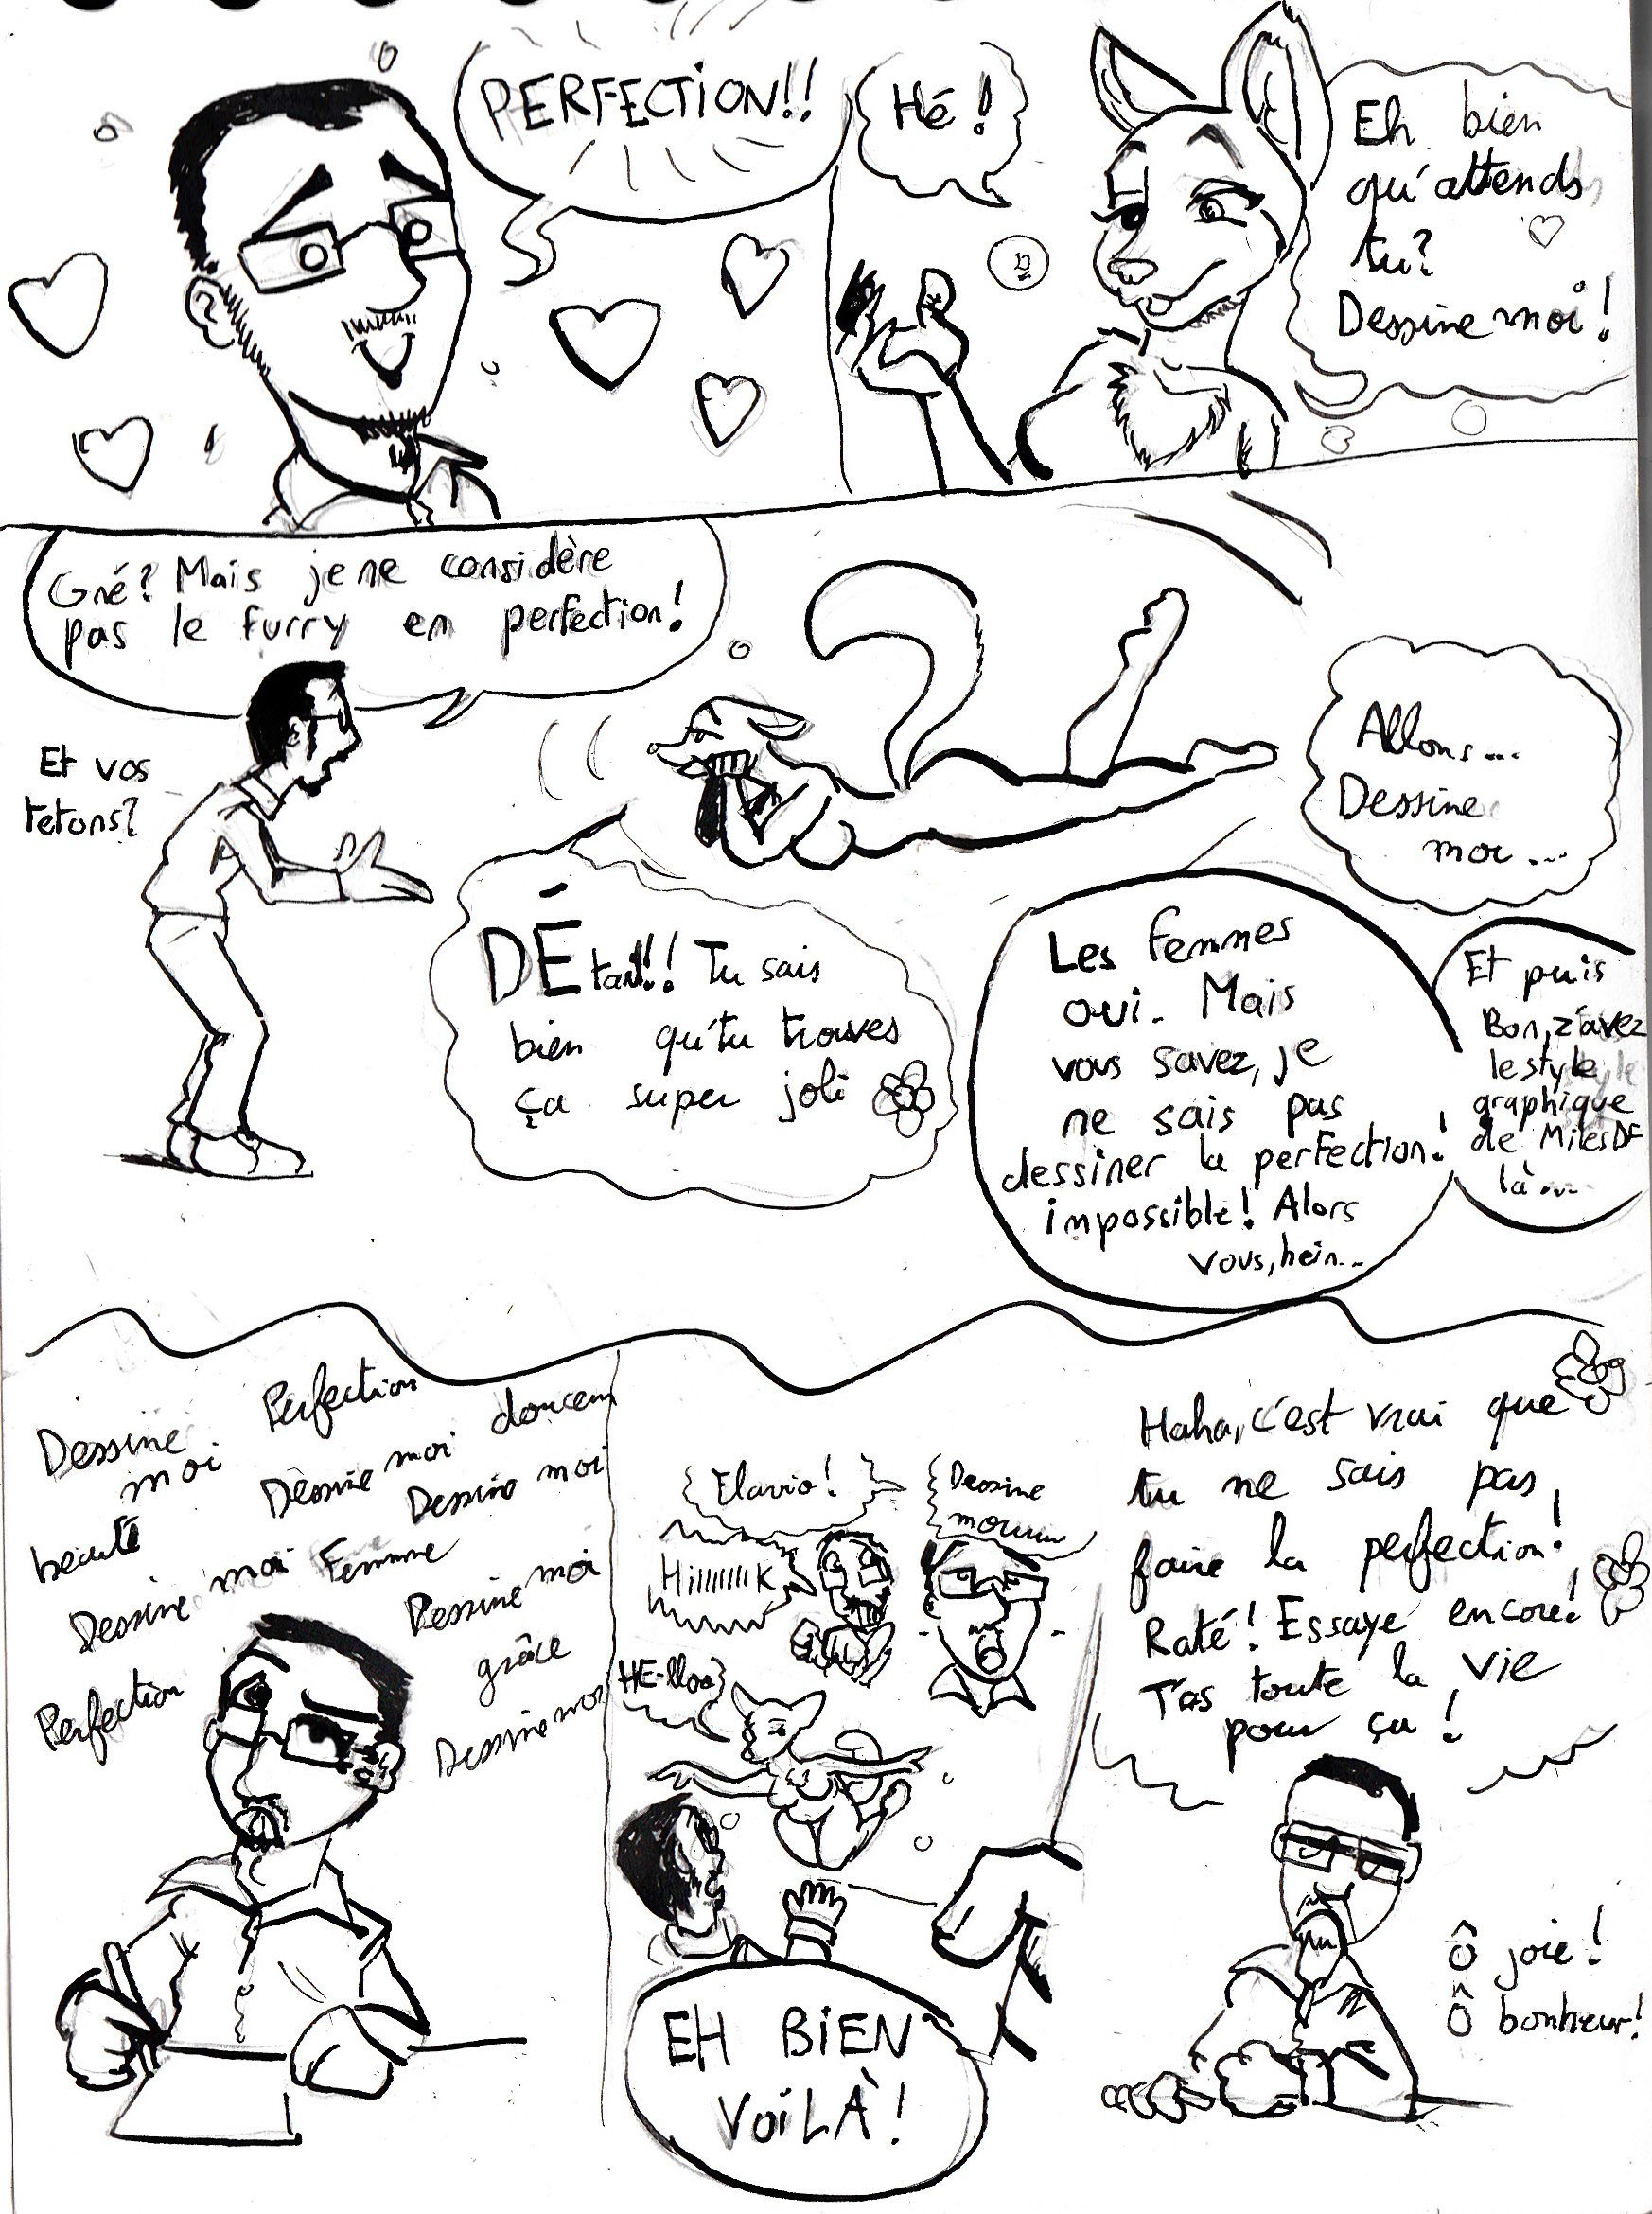 PERFECTION!!
Hé!
Eh bien
qu'attends
tu?
Dessine moi!
Gné? Mais je ne considère
pas le furry en perfection!
Et vos
tetons?
Allons...
Dessine
moi...
DÉtail!! Tu sais
bien qu'tu trouves
ça super joli
Les femmes
oui. Mais
vous savez, je
ne sais pas
dessiner la perfection!
impossible! Alors
vous, hein...
Et puis
Bon, z'avez
le style
graphique
de MilesDF
là...
Dessine
moi
Perfection
douceur
Dessine moi
Dessine moi
beauté
Dessine moi
Femme
Dessine moi
grâce
Perfection
Dessine moi
Flavio!
Dessine
moiiiii
HiIIIIIIIK
HE-lloo
EH BiEN
VOiLÀ!
Haha, c'est vrai que
tu ne sais pas
faire la perfection!
Raté! Essaye encore!
T'as toute la vie
pour ça!
Ô joie!
Ô bonheur!